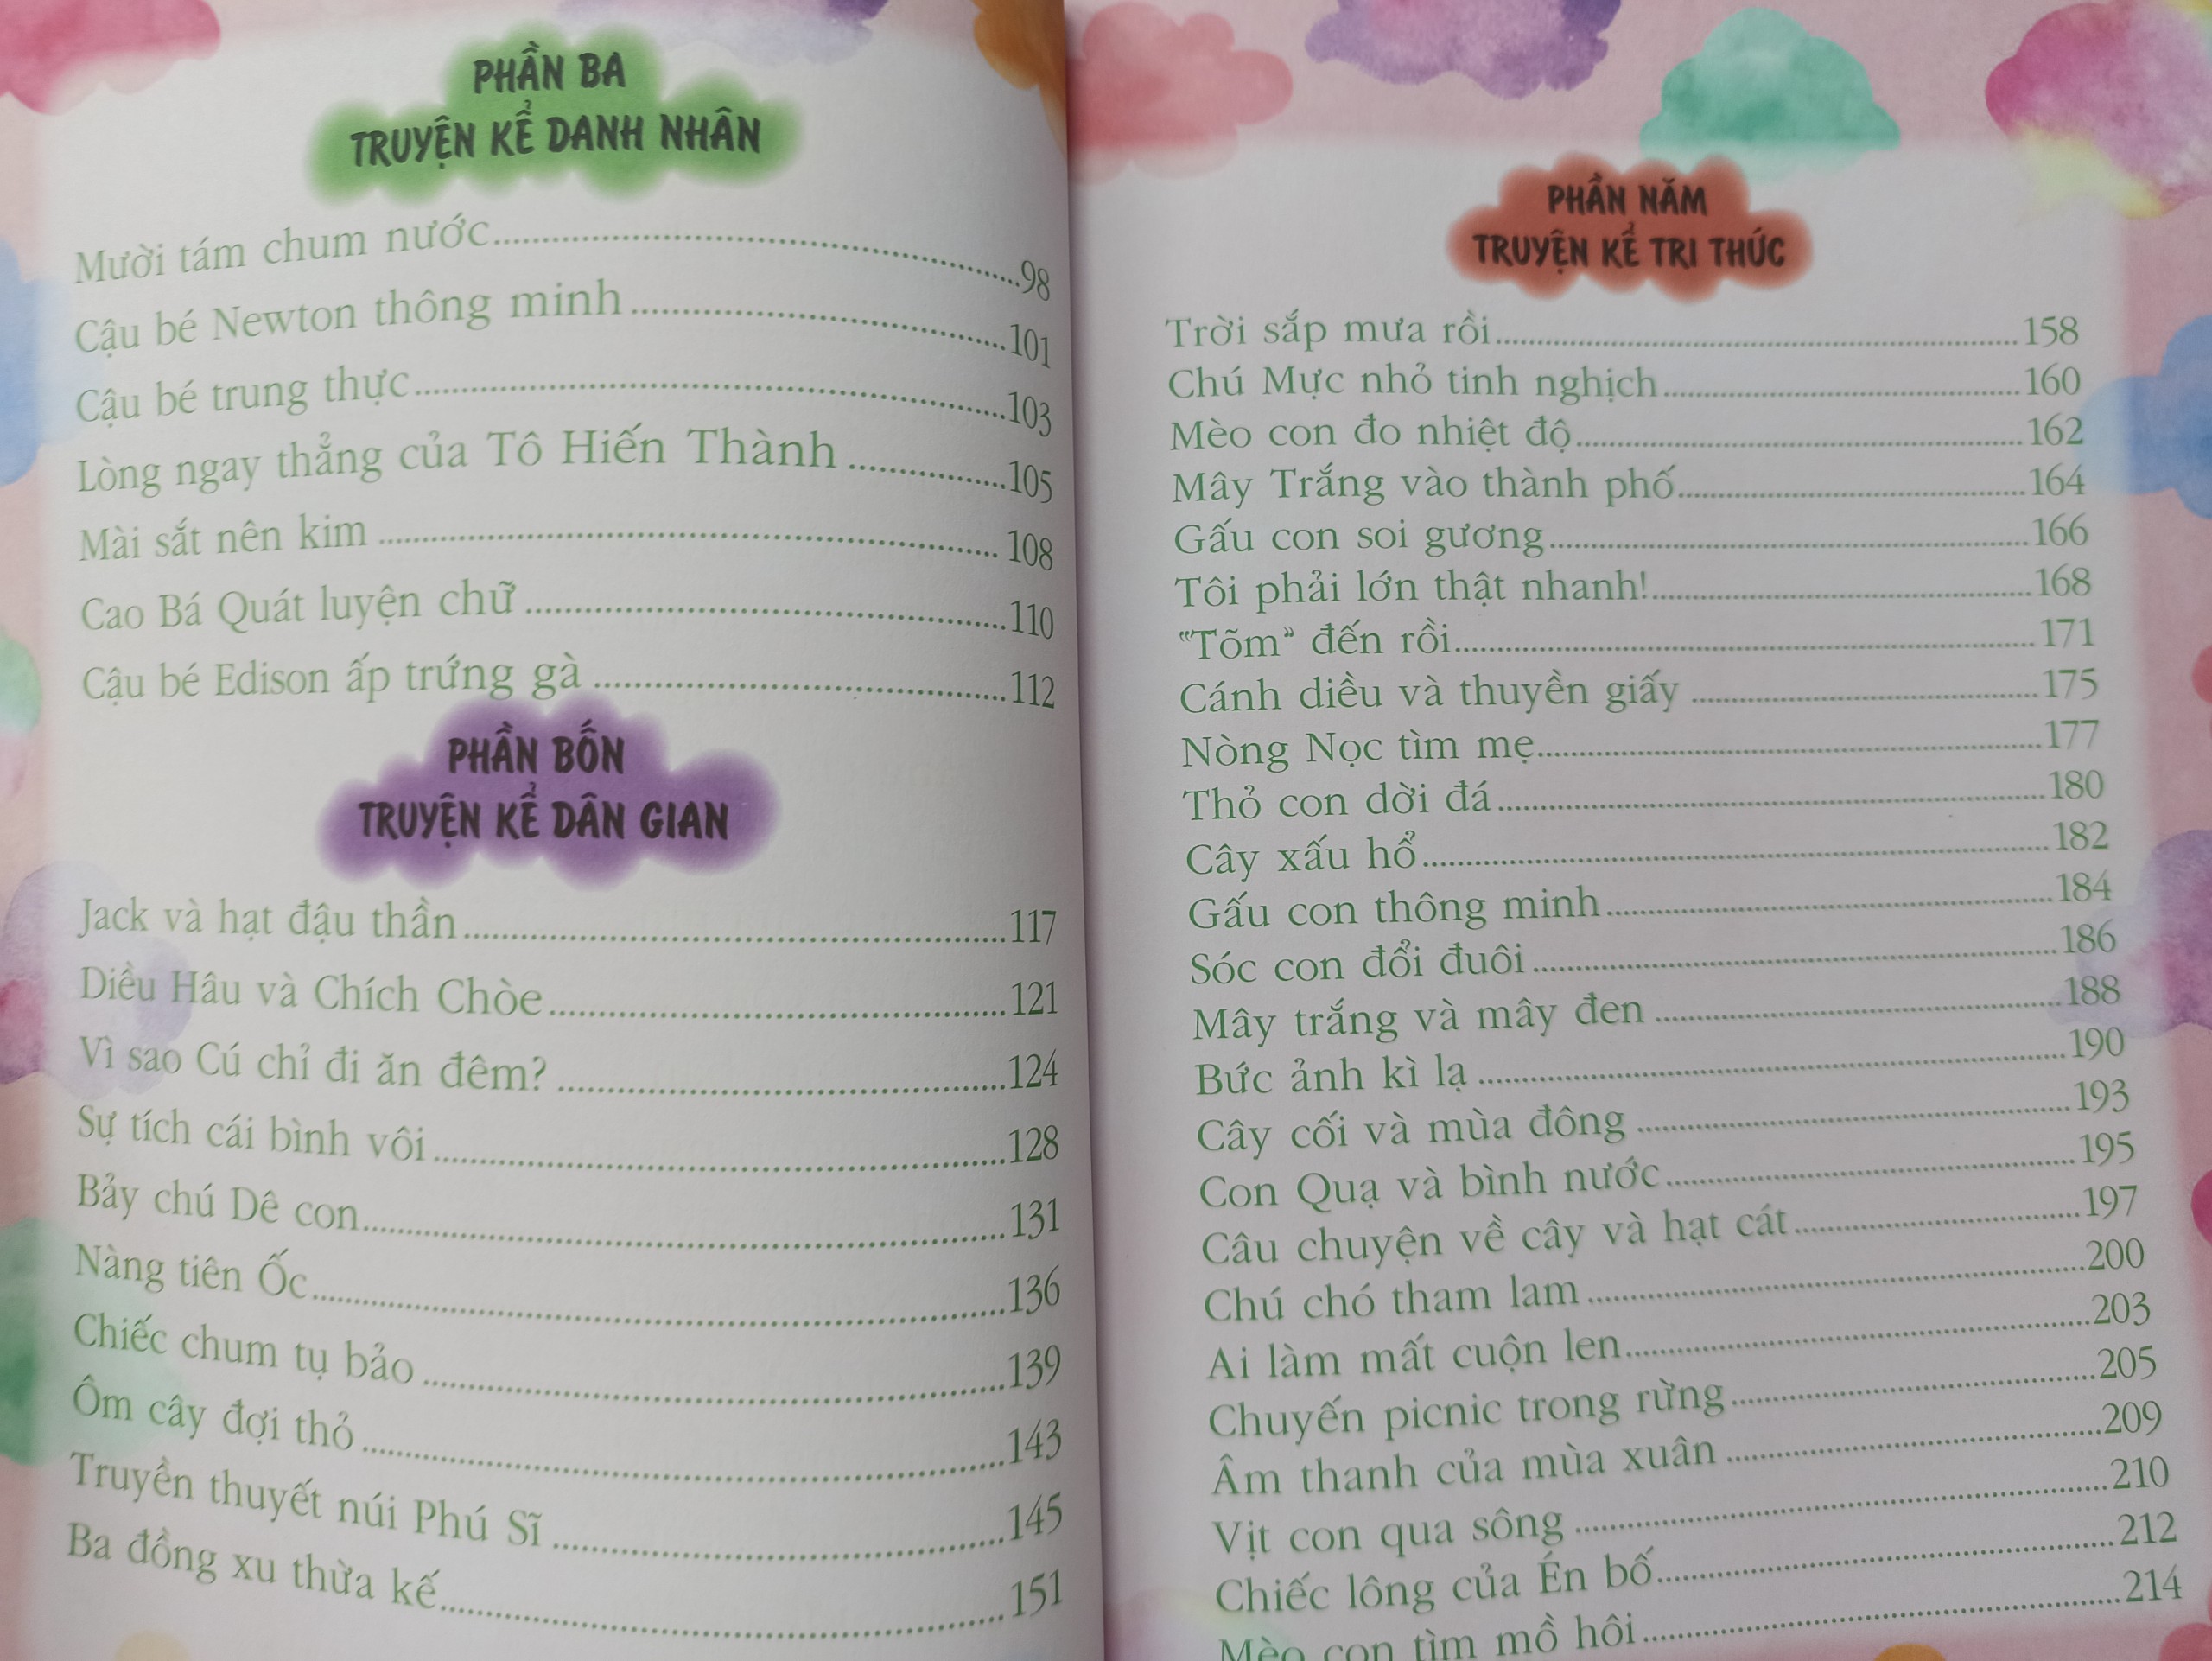 PHẦN BA
TRUYỆN KỂ DANH NHÂN
Mười tám chum nước........98
Cậu bé Newton thông minh........101
Cậu bé trung thực........103
Lòng ngay thẳng của Tô Hiến Thành........105
Mài sắt nên kim........108
Cao Bá Quát luyện chữ........110
Cậu bé Edison ấp trứng gà........112
PHẦN BỐN
TRUYỆN KỂ DÂN GIAN
Jack và hạt đậu thần........117
Diều Hâu và Chích Chòe........121
Vì sao Cú chỉ đi ăn đêm?........124
Sự tích cái bình vôi........128
Bảy chú Dê con........131
Nàng tiên Ốc........136
Chiếc chum tụ bảo........139
Ôm cây đợi thỏ........143
Truyền thuyết núi Phú Sĩ........145
Ba đồng xu thừa kế........151
PHẦN NĂM
TRUYỆN KỂ TRI THỨC
Trời sắp mưa rồi........158
Chú Mực nhỏ tinh nghịch........160
Mèo con đo nhiệt độ........162
Mây Trắng vào thành phố........164
Gấu con soi gương........166
Tôi phải lớn thật nhanh!........168
“Tõm” đến rồi........171
Cánh diều và thuyền giấy........175
Nòng Nọc tìm mẹ........177
Thỏ con dời đá........180
Cây xấu hổ........182
Gấu con thông minh........184
Sóc con đổi đuôi........186
Mây trắng và mây đen........188
Bức ảnh kì lạ........190
Cây cối và mùa đông........193
Con Quạ và bình nước........195
Câu chuyện về cây và hạt cát........197
Chú chó tham lam........200
Ai làm mất cuộn len........203
Chuyến picnic trong rừng........205
Âm thanh của mùa xuân........209
Vịt con qua sông........210
Chiếc lông của Én bố........212
Mèo con tìm mồ hôi........214